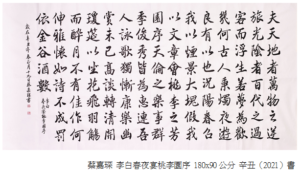 夫天地者萬物之逆
旅光陰者百代之過
客而浮生若夢為歡
幾何古人秉燭夜遊
良有以也況陽春召
我以煙景大塊假我
以文章會桃李之芳
園序天倫之樂事群
季俊秀皆為惠連吾
人詠歌獨慚康樂幽
賞未已高談轉清開
瓊筵以坐花飛羽觴
而醉月不有佳作何
伸雅懷如詩不成罰
依金谷酒數
蔡嘉琛 李白春夜宴桃李園序 180x90公分 辛丑（2021）書